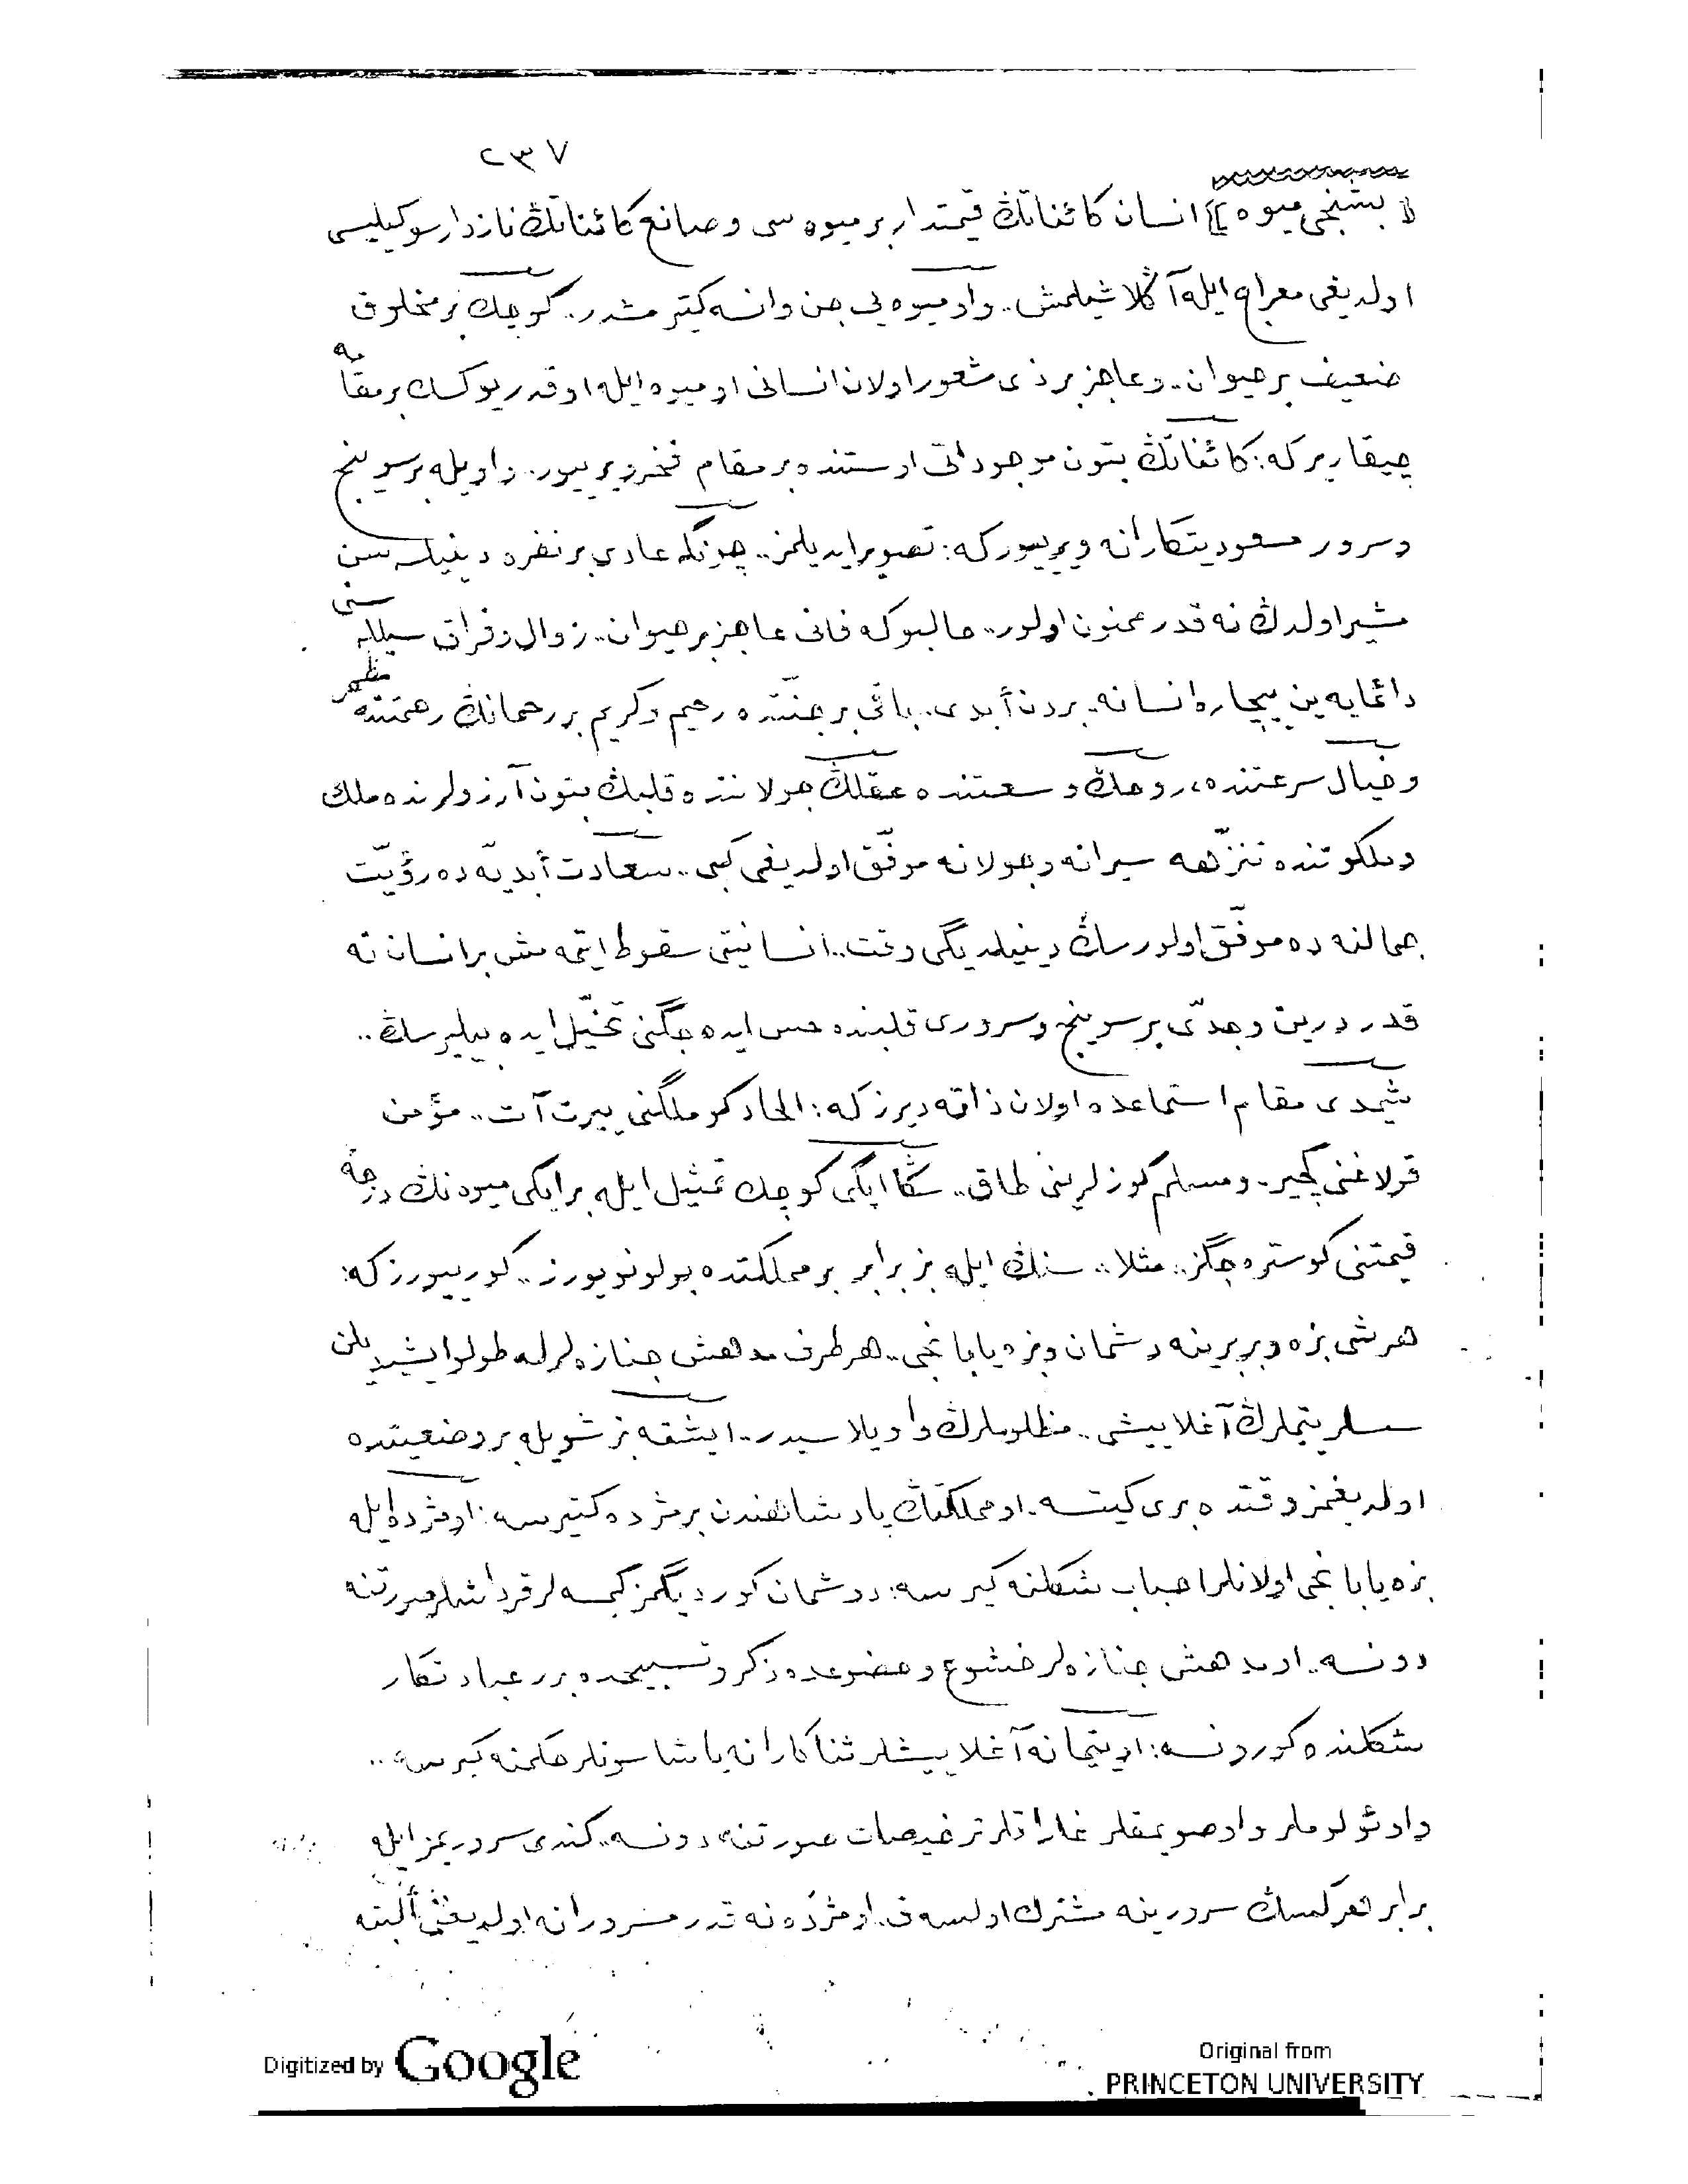 ٢٣٧
﴿ بشنجی میوه ﴾ انسان كائناتڭ قیمتدار بر میوه سی و صانع كائناتڭ نازدار سوكیلیسی
اولدیغی معراج ایله آڭلاشیلمش.. واو میوه یی جن وانسه كتیرمشدر. كوچك بر مخلوق
ضعیف بر حیوان.. وعاجز بر ذی شعور اولان انسانی او میوه ایله او قدر یوكسك بر مقامه
چیقاریر كه: كائناتڭ بتون موجوداتی اوستنده بر مقام فخر ویرییور. واویله بر سوینج
وسرور مسعودیتكارانه ویرییور كه: تصویر ایدیلمز.. چونكه عادی بر نفره دینیلسه سن
مشیر اولدڭ نه قدر ممنون اولور.. حالبوكه فانی عاجز بر حیوان.. زوال وفراق سیلله سنی
دائما یه ین بیچاره انسانه. بردن أبدی.. باقی بر جنّتده رحیم وكریم بر رحمانڭ رحمتنه مظهر
وخیال سرعتنده، روحڭ وسعتنده عقلڭ جولاننده قلبڭ بتون آرزولرنده ملك
وملكوتنده تنزّهه سیرانه وجولانه موفّق اولدیغی كبی.. سعادت أبدیّه ده رؤیت
جمالنه ده موفّق اولورسڭ دینیلدیگی وقت.. انسانیتی سقوط ایتمه مش بر انسان نه
قدر درین وجدّی بر سوینج وسروری قلبنده حس ایده جگنی تخیّل ایده بیلیرسڭ..
شیمدی مقام استماعده اولان ذاته دیرز كه: الحاد كوملگنی ییرت آت.. مؤمن
قولاغنی كچیر. ومسلم كوزلرینی طاق.. سڭا ایكی كوچك تمثیل ایله بر ایكی میوه نڭ درجه
قیمتنی كوستره جگز.. مثلا.. سنڭ ایله بز برابر بر مملكتده بولونویورز.. كورییورز كه:
هر شی بزه وبربرینه دشمان وبزه یابانجی.. هر طرف مدهش جنازه لرله طولو ایشیدیلن
سسلر یتیملرڭ آغلاییشی.. مظلوملرڭ واویلاسیدر.. ایشته بز شویله بر وضعیتده
اولدیغمز وقتده بری كیتسه. او مملكتڭ پادشاهندن بر مژده كتیرسه: او مژده ایله
بزه یابانجی اولانلر احباب شكلنه كیرسه: دوشمان كوردیگمز كیمسه لر قرداشلر صورتنه
دونسه.. او مدهش جنازه لر خشوع وخضوعده ذكر وتسبیحده برر عبادتكار
شكلنده كورونسه: او یتیمانه آغلاییشلر ثناكارانه یاشاسونلر حكمنه كیرسه..
واو ئولوملر واو صویمقلر غاراتلر ترخیصات صورتنه دونسه.. كندی سروریمز ایله
برابر هركسڭ سرورینه مشترك اولسه ق. او مژده نه قدر مسرورانه اولدیغنی ألبته
Digitized by Google
Original from
PRINCETON UNIVERSITY